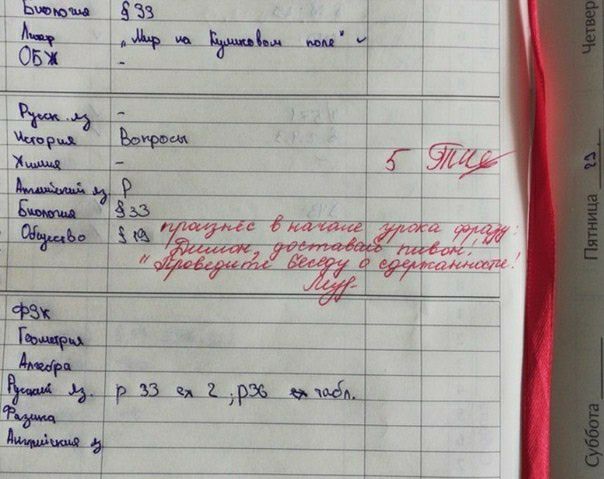 Биология § 33
Литер „Мир на Куликовом поле"
ОБЖ -
Четвер
Русск. яз -
История Вопросы
Химия -
5
Английский яз Р
Биология § 33
Общество § 19
произнёс в начале урока фразу:
"Димон, доставай пивон!"
Проведите беседу о сдержанности!
Пятница 29.
ФЗК
Геометрия
Алгебра
Русский яз. р 33 ех 2 ; р36 табл.
Физика
Английския яз
Суббота